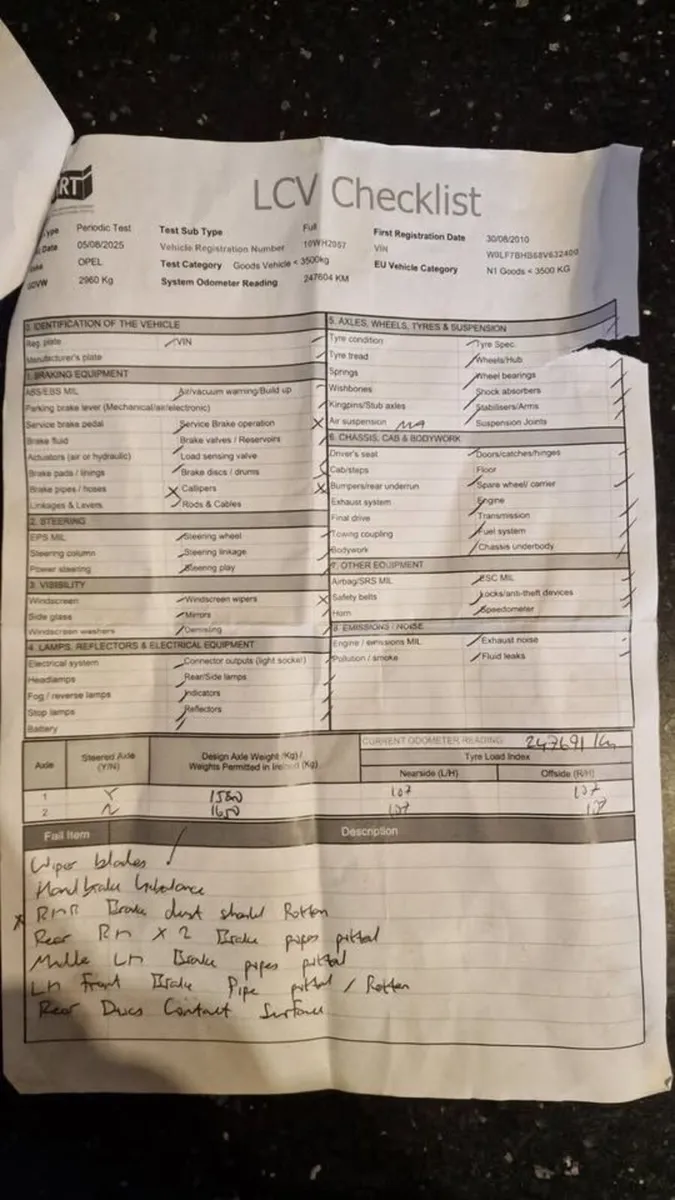 RT
LCV Checklist
Type Periodic Test Test Sub Type Full First Registration Date 30/08/2010
Date 05/08/2025 Vehicle Registration Number 10WH2057 VIN W0LF7BHB68V632400
OPEL Test Category Goods Vehicle < 3500kg EU Vehicle Category N1 Goods < 3500 KG
GDVW 2960 Kg System Odometer Reading 247604 KM
0. IDENTIFICATION OF THE VEHICLE
Reg. plate VIN
Manufacturer's plate
1. BRAKING EQUIPMENT
ABS/EBS MIL Air/vacuum warning/Build up
Parking brake lever (Mechanical/air/electronic)
Service brake pedal Service Brake operation
Brake fluid Brake valves / Reservoirs
Actuators (air or hydraulic) Load sensing valve
Brake pads / linings Brake discs / drums
Brake pipes / hoses Callipers
Linkages & Levers Rods & Cables
2. STEERING
EPS MIL Steering wheel
Steering column Steering linkage
Power steering Steering play
3. VISIBILITY
Windscreen Windscreen wipers
Side glass Mirrors
Windscreen washers Demisting
4. LAMPS, REFLECTORS & ELECTRICAL EQUIPMENT
Electrical system Connector outputs (light socket)
Headlamps Rear/Side lamps
Fog / reverse lamps Indicators
Stop lamps Reflectors
Battery
5. AXLES, WHEELS, TYRES & SUSPENSION
Tyre condition Tyre Spec.
Tyre tread Wheels/Hub
Springs Wheel bearings
Wishbones Shock absorbers
Kingpins/Stub axles Stabilisers/Arms
Air suspension Suspension Joints
6. CHASSIS, CAB & BODYWORK
Driver's seat Doors/catches/hinges
Cab/steps Floor
Bumpers/rear underrun Spare wheel/ carrier
Exhaust system Engine
Final drive Transmission
Towing coupling Fuel system
Bodywork Chassis underbody
7. OTHER EQUIPMENT
Airbag/SRS MIL ESC MIL
Safety belts Locks/anti-theft devices
Horn Speedometer
8. EMISSIONS / NOISE
Engine / emissions MIL Exhaust noise
Pollution / smoke Fluid leaks
CURRENT ODOMETER READING 247691 Km
Axle Steered Axle (Y/N) Design Axle Weight (Kg) / Weights Permitted in Ireland (Kg) Tyre Load Index
Nearside (L/H) Offside (R/H)
1 Y 1550 107 107
2 N 1650 107 107
Fail Item Description
Wiper blades
Handbrake Imbalance
Brake dust shield Rotten
Rear RH x 2 Brake pipes pitted
Middle LH Brake pipes pitted
LH Front Brake Pipe pitted / Rotten
Rear Discs Contact Surface